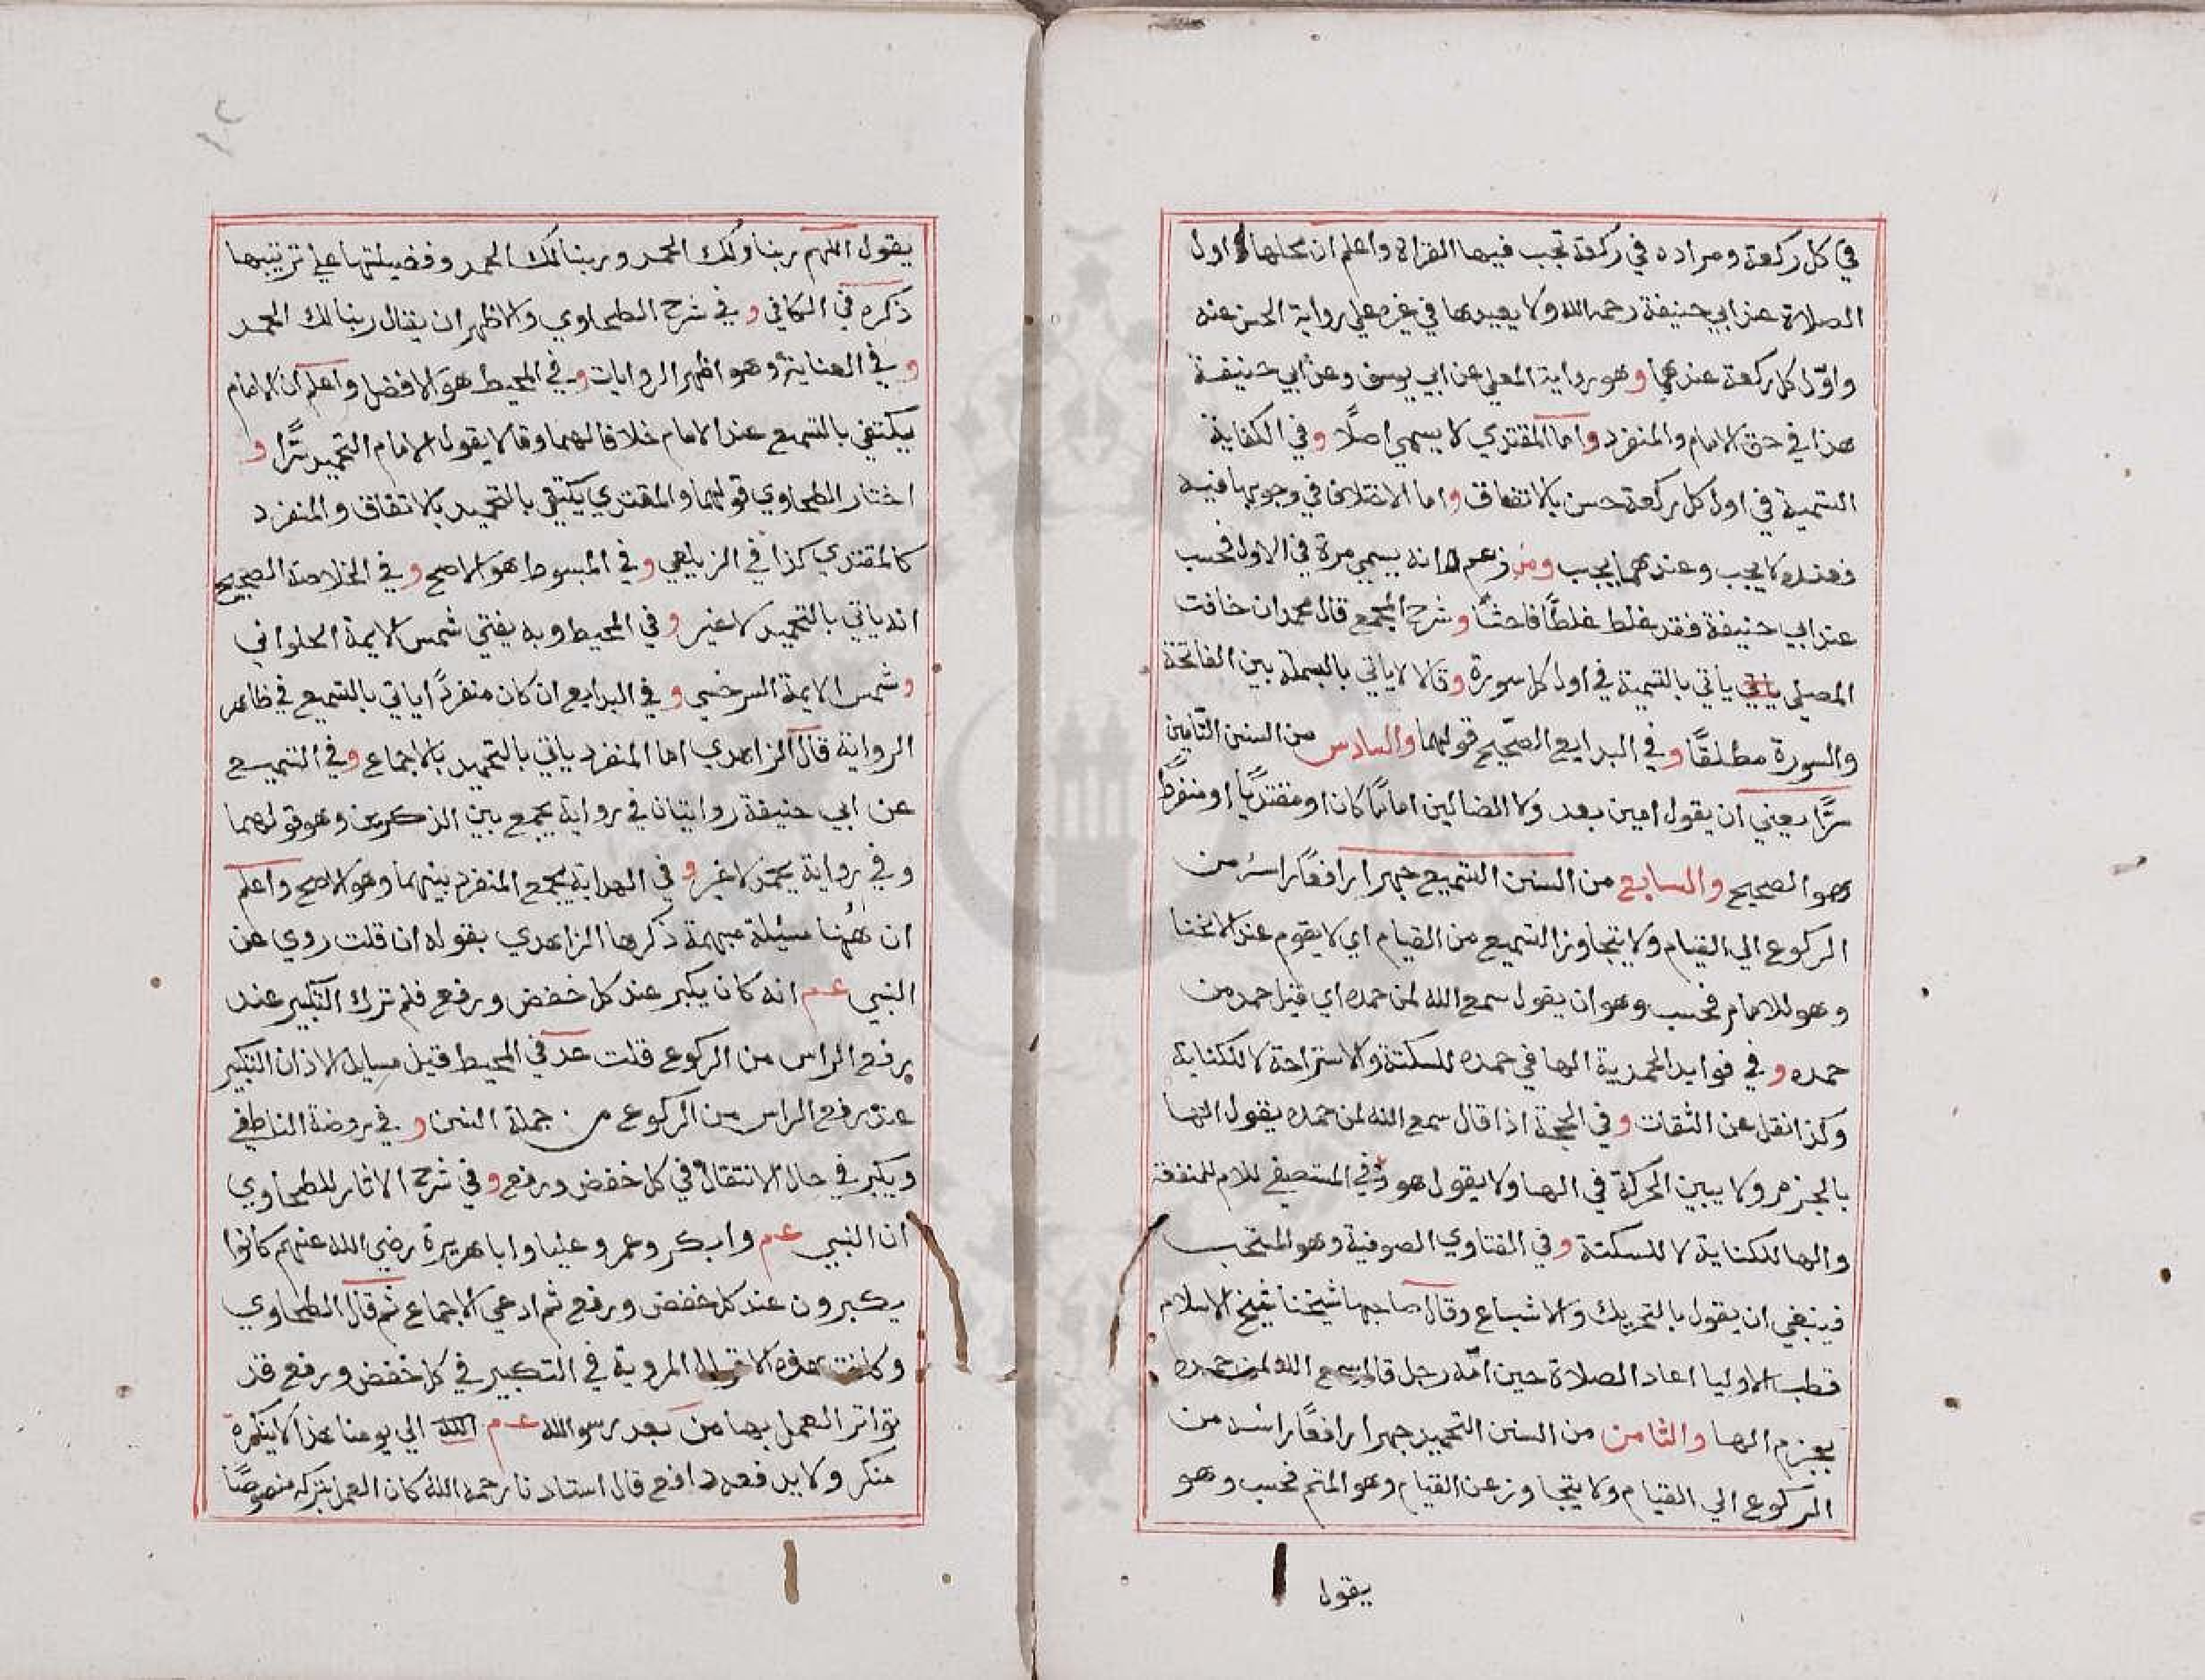 في كل ركعة ومراده في ركعة تجب فيها القراة واعلم ان محلها اول
الصلاة عند ابي حنيفة رحمه الله ولا يعيدها في غيره علي رواية الحسن عنه
واوّل كل ركعة عندهما وهو رواية المعلي عن ابي يوسف وعن ابي حنيفة
هذا في حق الامام والمنفرد واما المقتدي لا يسمي اصلًا وفي الكفاية
التسمية في اول كل ركعة حسن بالاتفاق واما الاختلاف في وجوبها فيه
فعنده لا يجب وعندهما يجب ومن زعم انه يسمي مرة في الاول فحسب
عند ابي حنيفة فقد غلط غلطًا فاحشًا وشرح المجمع قال محمد ان خافت
المصلي ياتي ياتي بالتسمية في اول كل سورة وقالا لا ياتي بالبسملة بين الفاتحة
والسورة مطلقًا وفي البدايع الصحيح قولهما والسادس من السنن التّامين
سرًّا يعني ان يقول امين بعد ولا الضالين امامًا كان او مقتديًا او منفردًا
وهو الصحيح والسابع من السنن التسميع جهرا رافعًا راسه من
الركوع الي القيام ولا يتجاوز التسميع من القيام اي لا يقوم عند الانحنا
وهو للامام فحسب وهو ان يقول سمع الله لمن حمده اي قبل حمد من
حمده وفي فوايد الحمدية الها في حمده للسكتة والاستراحة لا للكناية
وكذا نقل عن الثقات وفي الحجة اذا قال سمع الله لمن حمده يقول الها
بالجزم ولا يبين الحركة في الها ولا يقول هو وفي المستصفي للام للمنفعة
والها للكناية لا للسكتة وفي الفتاوي الصوفية وهو المستحب
فينبغي ان يقول بالتحريك والاشباع وقال صاحبها شيخنا شيخ الاسلام
قطب الاوليا اعاد الصلاة حين امّه رجل قال سمع الله لمن حمده
بجزم الها والثامن من السنن التحميد جهرا رافعًا راسه من
الركوع الي القيام ولا يتجاوز عن القيام وهو المتم فحسب وهو
يقول
يقول اللهم ربنا ولك الحمد وربنا لك الحمد وفضيلتها علي ترتيبها
ذكره في الكافي وفي شرح الطحاوي والاظهر ان يقال ربنا لك الحمد
وفي العناية وهو اظهر الروايات وفي المحيط هو الافضل واعلم ان الامام
يكتفي بالتسميع عند الامام خلافا لهما وقالا يقول الامام التحميد سرًّا و
اختار الطحاوي قولهما والمقتدي يكتفي بالتحميد بالاتفاق والمنفرد
كالمقتدي كذا في الزيلعي وفي المبسوط هو الاصح وفي الخلاصة الصحيح
انه ياتي بالتحميد لا غير وفي المحيط وبه يفتي شمس الايمة الحلواني
وشمس الايمة السرخسي وفي البدايع ان كان منفردًا ياتي بالتسميع في ظاهر
الرواية قال الزاهدي اما المنفرد ياتي بالتحميد بالاجماع وفي التسميع
عن ابي حنيفة روايتان في رواية يجمع بين الذكرين وهو قولهما
وفي رواية يحمد لا غير وفي الهداية يجمع المنفرد بينهما وهو الاصح واعلم
ان ههُنا مسئلة مبهمة ذكرها الزاهدي بقوله ان قلت روي عن
النبي عم انه كان يكبر عند كل خفض ورفع فلم ترك التكبير عند
رفع الراس من الركوع قلت عد في المحيط قبل مسايل الاذان التكبير
عند رفع الراس من الركوع من جملة السنن وفي روضة الناطفي
ويكبر في حال الانتقال في كل خفض ورفع وفي شرح الاثار للطحاوي
ان النبي عم وابا بكر وعمر وعليا وابا هريرة رضي الله عنهم كانوا
يكبرون عند كل خفض ورفع ثم ادعي الاجماع ثم قال الطحاوي
وكانت هذه الاقوال المروية في التكبير في كل خفض ورفع قد
تواتر العمل بها من بعد رسو الله عم الله الي يومنا هذا لا ينكره
منكر ولا يدفعه دافع قال استادنا رحمه الله كان العمل بتركه منصوصًا